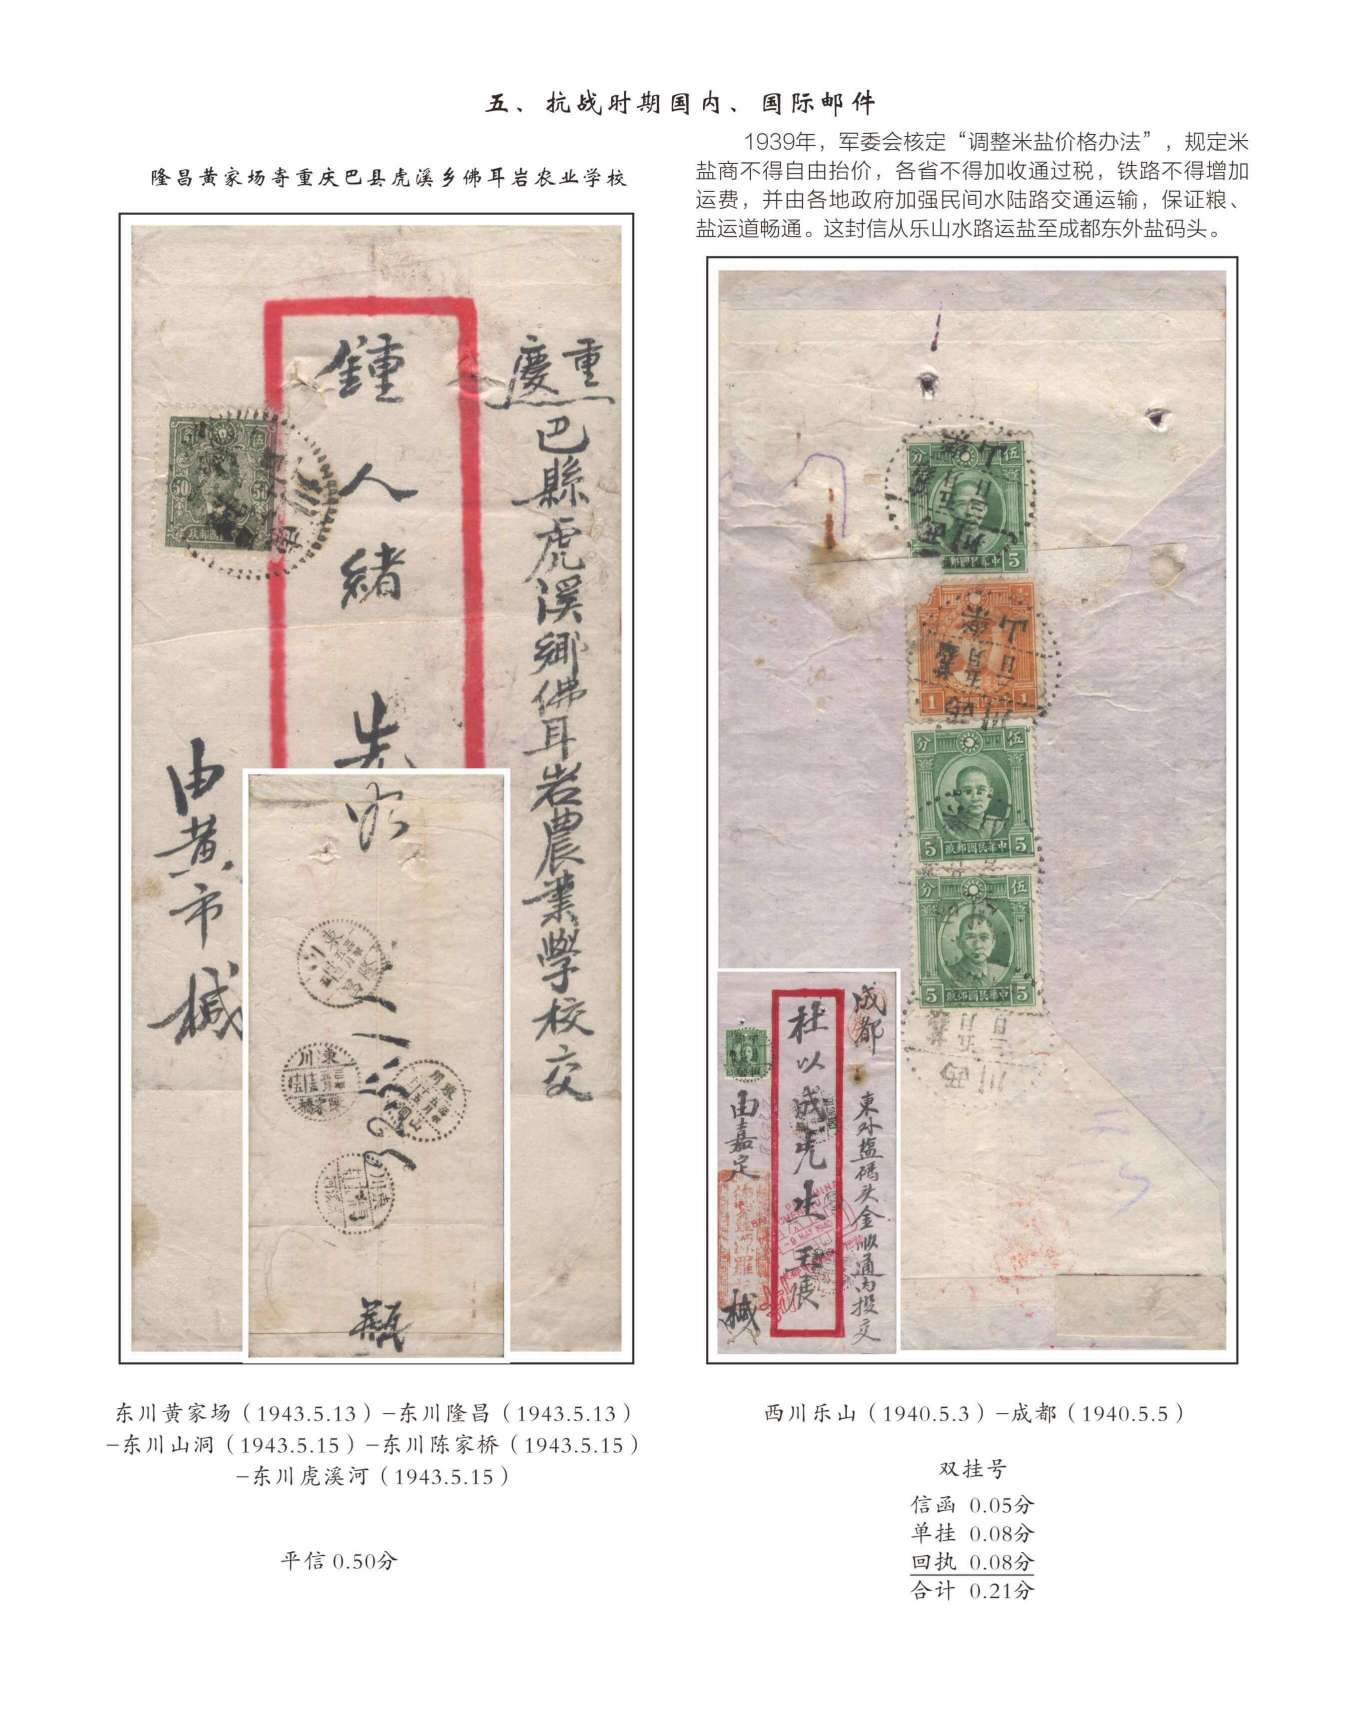 五、抗战时期国内、国际邮件
隆昌黄家场寄重庆巴县虎溪乡佛耳岩农业学校
1939年，军委会核定“调整米盐价格办法”，规定米
盐商不得自由抬价，各省不得加收通过税，铁路不得增加
运费，并由各地政府加强民间水陆路交通运输，保证粮、
盐运道畅通。这封信从乐山水路运盐至成都东外盐码头。
重慶
巴縣虎溪鄉佛耳岩農業學校交
鍾人緒先
由黄市椷
伍
50
50
東川
分
伍
5
中華民國郵政
1
1
分
伍
5
中華民國郵政
5
分
伍
5
中華民國郵政
5
川西
成都
東外盐碼头金順通內投交
杜以成先生
由嘉定
椷
东川黄家场（1943.5.13）–东川隆昌（1943.5.13）
–东川山洞（1943.5.15）–东川陈家桥（1943.5.15）
–东川虎溪河（1943.5.15）
平信 0.50分
西川乐山（1940.5.3）–成都（1940.5.5）
双挂号
信函 0.05分
单挂 0.08分
回执 0.08分
合计 0.21分